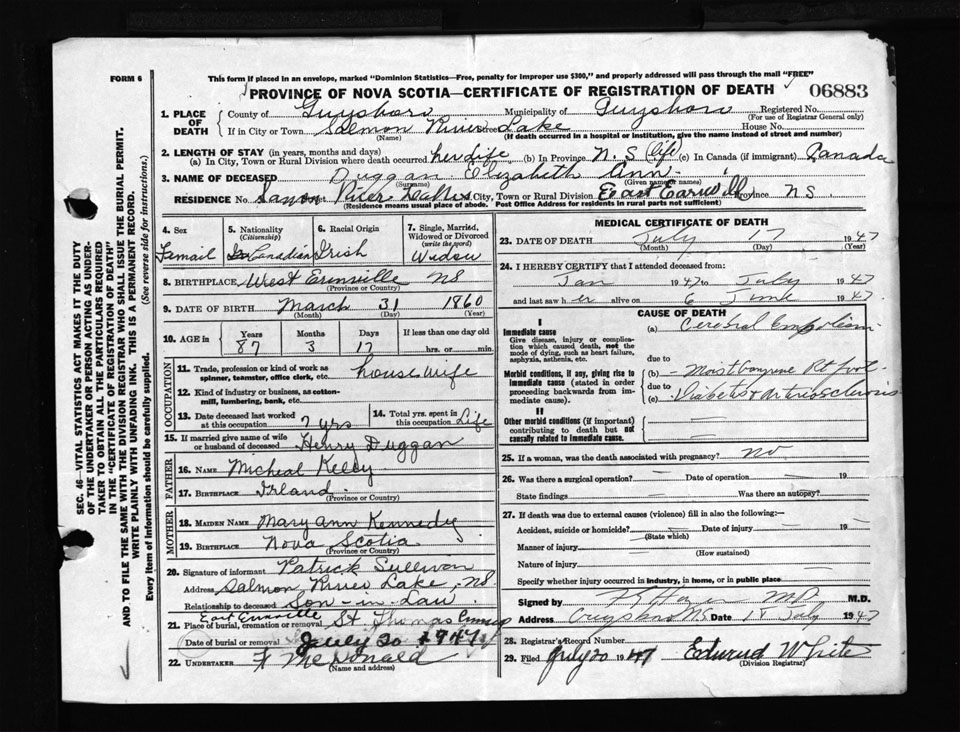 FORM 6
This form if placed in an envelope, marked "Dominion Statistics—Free, penalty for improper use $300," and properly addressed will pass through the mail "FREE"
PROVINCE OF NOVA SCOTIA—CERTIFICATE OF REGISTRATION OF DEATH
06883
1. PLACE OF DEATH
County of Guysboro Municipality of Guysboro Registered No.
(For use of Registrar General only)
If in City or Town Salmon River Lake House No.
(Name) (If death occurred in a hospital or institution, give the name instead of street and number)
2. LENGTH OF STAY (in years, months and days)
(a) In City, Town or Rural Division where death occurred her Life (b) In Province N. S (life) (c) In Canada (if immigrant) Canada
3. NAME OF DECEASED Duggan Elizabeth Ann
(Surname) (Given name or names)
RESIDENCE No. River City, Town or Rural Division East Province NS.
(Residence means usual place of abode. Post Office Address for residents in rural parts not sufficient)
4. Sex
Femail
5. Nationality
(Citizenship)
Canadian
6. Racial Origin
Irish
7. Single, Married, Widowed or Divorced
(write the word)
Widow
8. BIRTHPLACE West Erinville NS
(Province or Country)
9. DATE OF BIRTH March 31 1860
(Month) (Day) (Year)
10. AGE in
Years Months Days If less than one day old
87 3 17 hrs. or min.
OCCUPATION
11. Trade, profession or kind of work as spinner, teamster, office clerk, etc. house wife
12. Kind of industry or business, as cotton-mill, lumbering, bank, etc.
13. Date deceased last worked at this occupation 7 yrs
14. Total yrs. spent in this occupation Life
15. If married give name of wife or husband of deceased Henry Duggan
FATHER
16. NAME Micheal Kelly
17. BIRTHPLACE Irland
(Province or Country)
MOTHER
18. MAIDEN NAME Mary Ann Kennedy
19. BIRTHPLACE Nova Scotia
(Province or Country)
20. Signature of informant Patrick Sullivan
Address Salmon River Lake, NS
Relationship to deceased Son-in-Law
East Erinville
21. Place of burial, cremation or removal St Thomas
Date of burial or removal July 20 1947
22. UNDERTAKER F McDonald
(Name and address)
MEDICAL CERTIFICATE OF DEATH
23. DATE OF DEATH July 17 1947
(Month) (Day)
24. I HEREBY CERTIFY that I attended deceased from:
Jan 1947 to July 1947
and last saw her alive on 6 June 1947.
CAUSE OF DEATH
I
Immediate cause
Give disease, injury or complication which caused death, not the mode of dying, such as heart failure, asphyxia, asthenia, etc.
(a) Cerebral Embolism
due to
Morbid conditions, if any, giving rise to immediate cause (stated in order proceeding backwards from immediate cause).
(b) Moist Rt foot
due to
(c) Diabetes & Arteriosclerosis
II
Other morbid conditions (if important) contributing to death but not causally related to immediate cause.
25. If a woman, was the death associated with pregnancy? no
26. Was there a surgical operation? — Date of operation — 19
State findings — Was there an autopsy? —
27. If death was due to external causes (violence) fill in also the following:—
Accident, suicide or homicide? — Date of injury — 19 —
(State which)
Manner of injury —
(How sustained)
Nature of injury —
Specify whether injury occurred in industry, in home, or in public place
Signed by M.D. M.D.
Address Guysboro NS Date 18 July 1947
28. Registrar's Record Number
29. Filed July 20 1947 Edward White
(Division Registrar)
SEC. 46—VITAL STATISTICS ACT MAKES IT THE DUTY
OF THE UNDERTAKER OR PERSON ACTING AS UNDER-
TAKER TO OBTAIN ALL THE PARTICULARS REQUIRED
IN THE "CERTIFICATE OF REGISTRATION OF DEATH"
AND TO FILE THE SAME WITH THE DIVISION REGISTRAR WHO SHALL ISSUE THE BURIAL PERMIT.
WRITE PLAINLY WITH UNFADING INK. THIS IS A PERMANENT RECORD.
Every item of information should be carefully supplied. (See reverse side for instructions.)